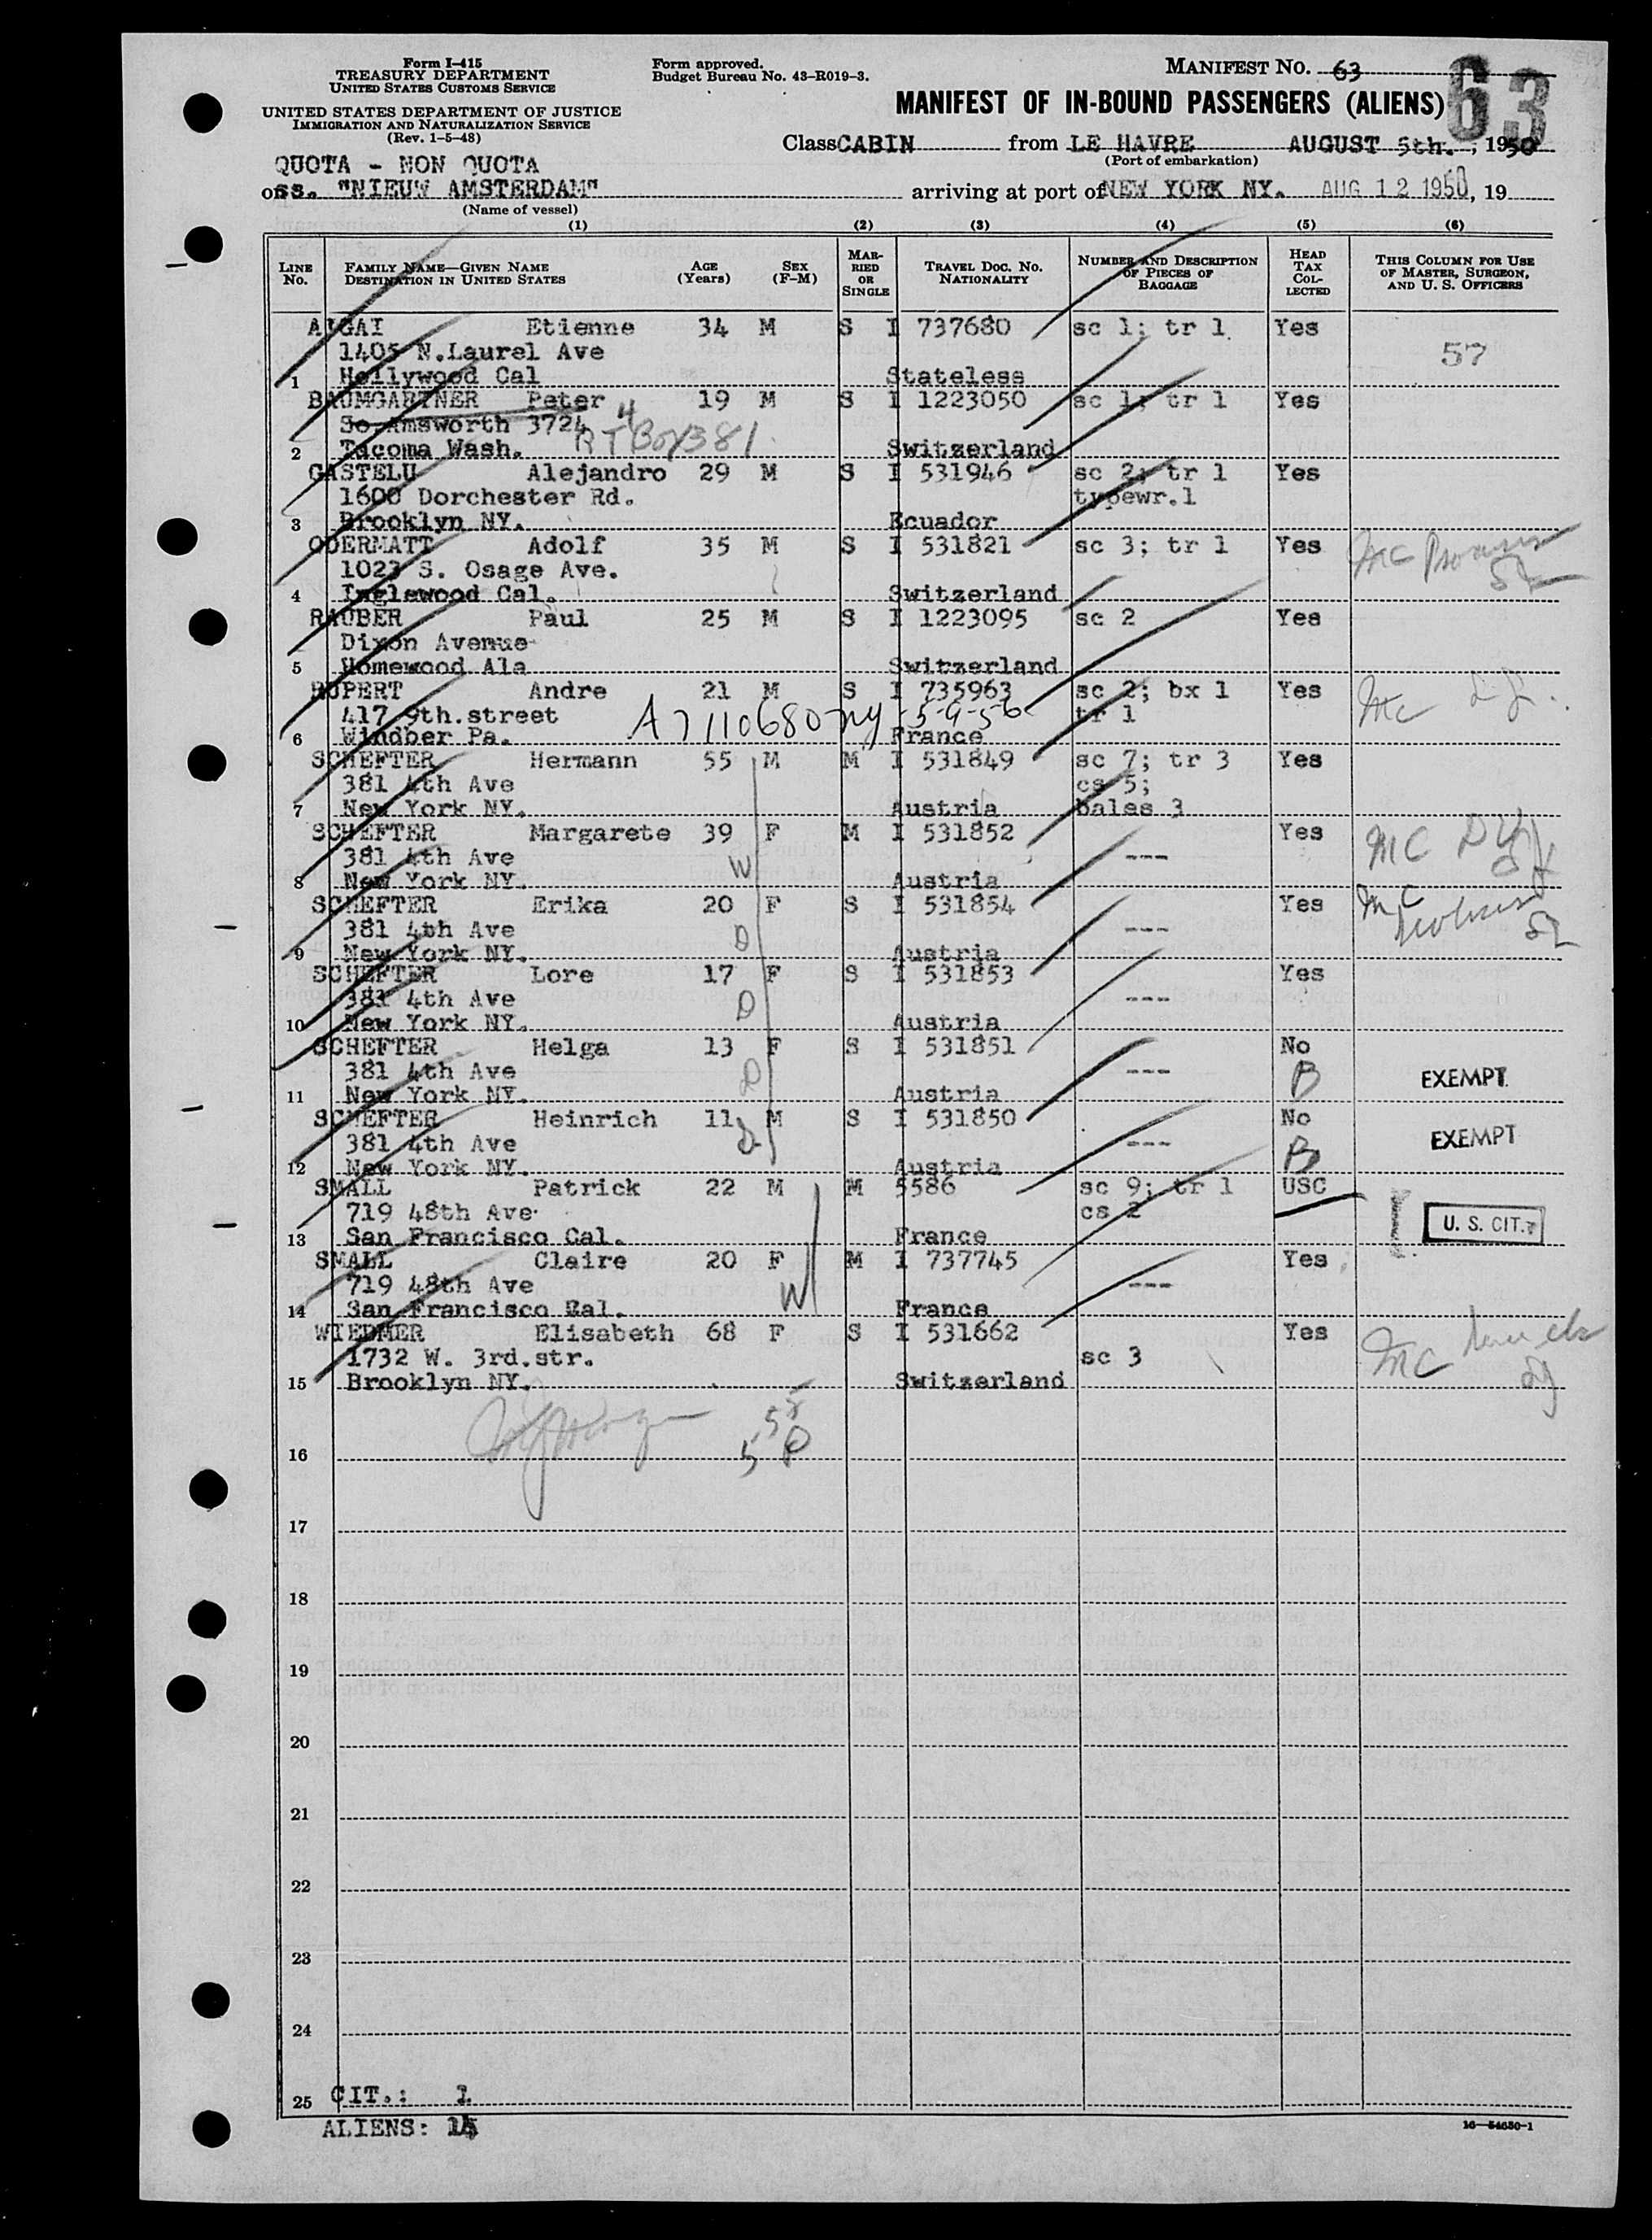 Form I-415
TREASURY DEPARTMENT
UNITED STATES CUSTOMS SERVICE
UNITED STATES DEPARTMENT OF JUSTICE
IMMIGRATION AND NATURALIZATION SERVICE
(Rev. 1-5-48)
Form approved.
Budget Bureau No. 43-R019-3.
MANIFEST NO. 63
63
MANIFEST OF IN-BOUND PASSENGERS (ALIENS)
Class CABIN from LE HAVRE AUGUST 5th. , 1950
(Port of embarkation)
QUOTA - NON QUOTA
on ss. "NIEUW AMSTERDAM" arriving at port of NEW YORK NY. AUG 12 1950, 19
(Name of vessel)
(1) (2) (3) (4) (5) (6)
LINE No. FAMILY NAME—GIVEN NAME DESTINATION IN UNITED STATES AGE (Years) SEX (F-M) MARRIED OR SINGLE TRAVEL DOC. NO. NATIONALITY NUMBER AND DESCRIPTION OF PIECES OF BAGGAGE HEAD TAX COLLECTED THIS COLUMN FOR USE OF MASTER, SURGEON, AND U. S. OFFICERS
AIGAI Etienne 34 M S I 737680 sc 1; tr 1 Yes
1405 N.Laurel Ave 57
1 Hollywood Cal Stateless
BAUMGARTNER Peter 19 M S I 1223050 sc 1; tr 1 Yes
So.Amsworth 3724
2 Tacoma Wash. RT 4 Box 381 Switzerland
GASTELU Alejandro 29 M S I 531946 sc 2; tr 1 Yes
1600 Dorchester Rd. typewr.1
3 Brooklyn NY. Ecuador
ODERMATT Adolf 35 M S I 531821 sc 3; tr 1 Yes MC
1023 S. Osage Ave.
4 Inglewood Cal. Switzerland
RAUBER Paul 25 M S I 1223095 sc 2 Yes
Dixon Avenue
5 Homewood Ala Switzerland
RUPERT Andre 21 M S I 735963 sc 2; bx 1 Yes MC
417 9th.street A7110680 ny-5-9-56 tr 1
6 Windber Pa. France
SCHEFTER Hermann 55 M M I 531849 sc 7; tr 3 Yes
381 4th Ave cs 5;
7 New York NY. Austria bales 3
SCHEFTER Margarete 39 F M I 531852 Yes MC
381 4th Ave W ---
8 New York NY. Austria
SCHEFTER Erika 20 F S I 531854 Yes MC
381 4th Ave D ---
9 New York NY. Austria
SCHEFTER Lore 17 F S I 531853 Yes
381 4th Ave D ---
10 New York NY. Austria
SCHEFTER Helga 13 F S I 531851 No
381 4th Ave D --- B EXEMPT
11 New York NY. Austria
SCHEFTER Heinrich 11 M S I 531850 No
381 4th Ave --- B EXEMPT
12 New York NY. Austria
SMALL Patrick 22 M M 5586 sc 9; tr 1 USC
719 48th Ave cs 2 U. S. CIT.
13 San Francisco Cal. France
SMALL Claire 20 F M I 737745 Yes
719 48th Ave W ---
14 San Francisco Cal. France
WIEDMER Elisabeth 68 F S I 531662 Yes
1732 W. 3rd.str. sc 3 MC
15 Brooklyn NY. Switzerland
16
17
18
19
20
21
22
23
24
25 CIT.: 1
ALIENS: 14
16—54630-1